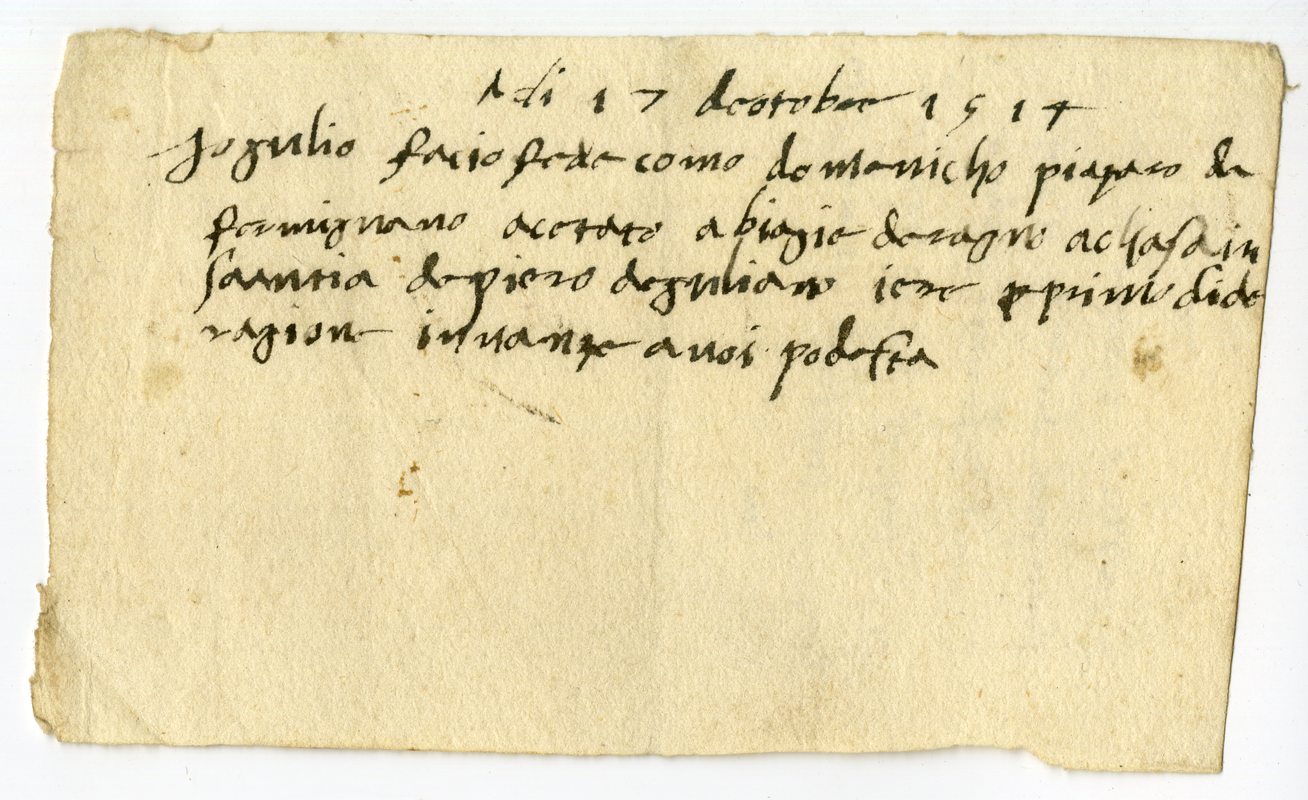 Adi 17 deotobre 1514
Jo gulio facio fede como domenicho piaparo de
fermignano acetato abiagio deragno achasa in
santia depiero deguliano iere p primo di de
ragione innanze a voi podesta